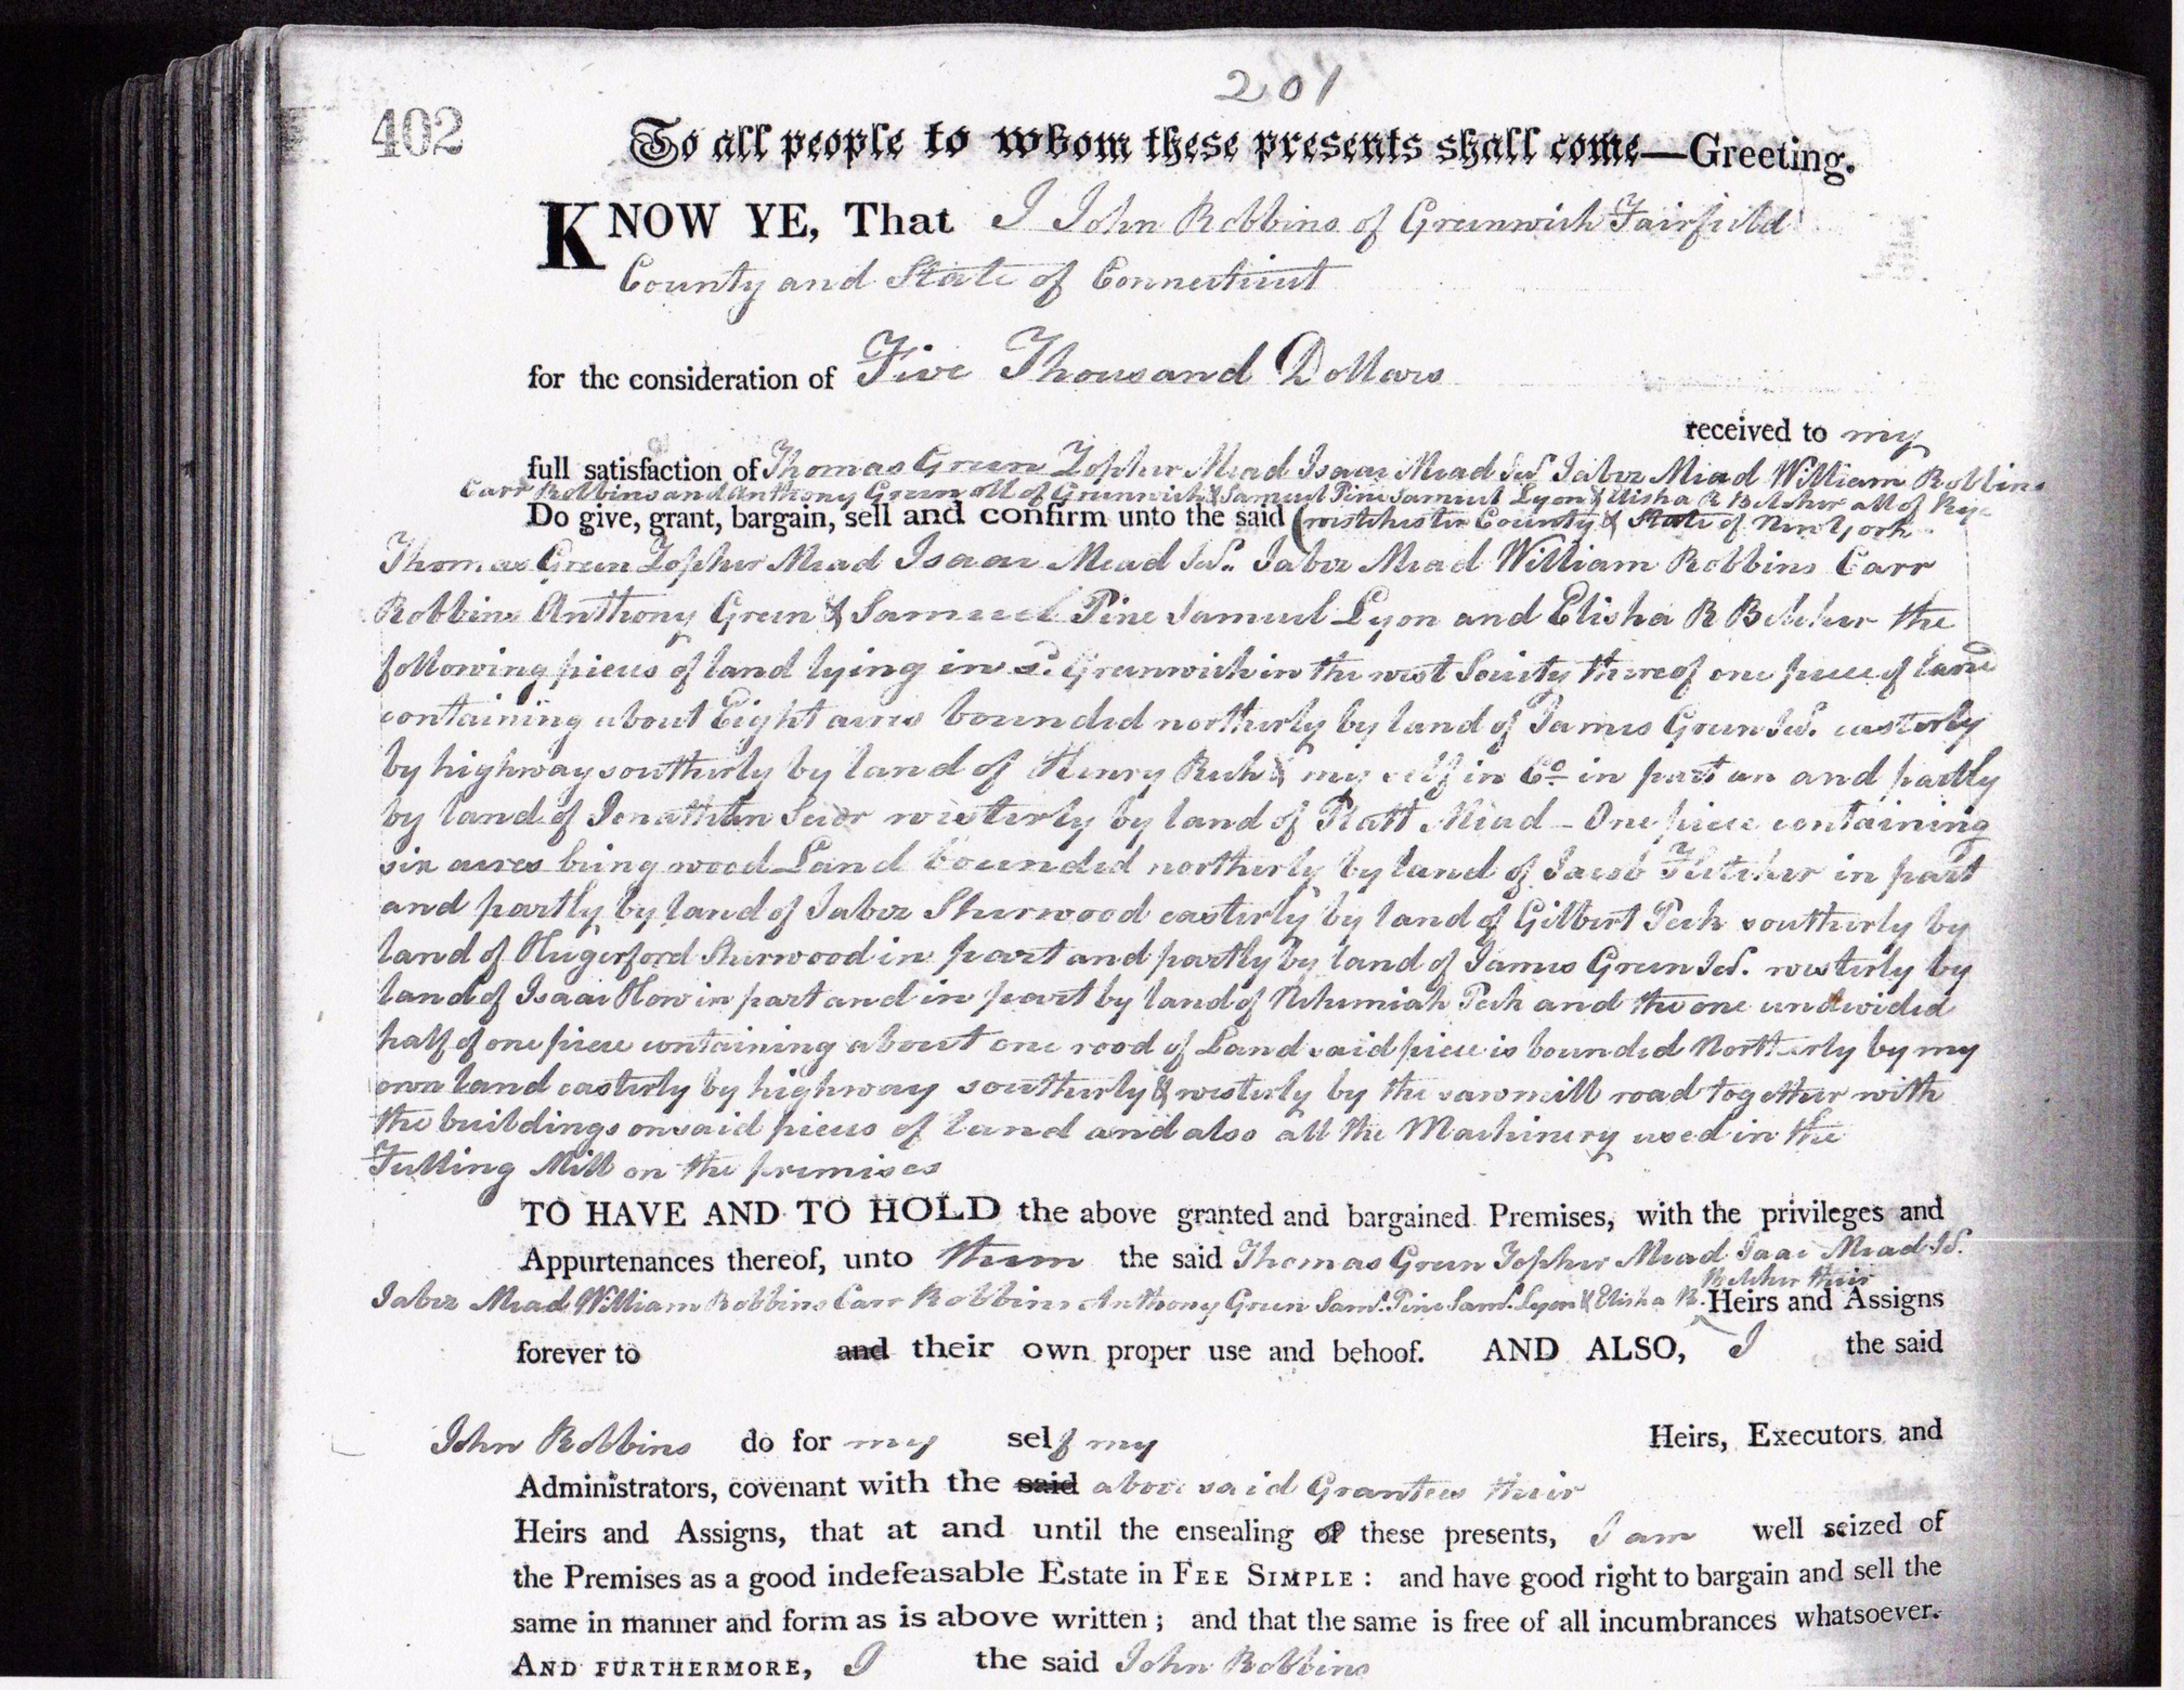 201
402
To all people to whom these presents shall come—Greeting.
KNOW YE, That I John Robbins of Greenwich Fairfield
County and State of Connecticut
for the consideration of Five Thousand Dollars
received to my
full satisfaction of Thomas Green Zopher Mead Isaac Mead Jur. Jabez Mead William Robbins
Carr Robbins and Anthony Green all of Greenwich & Samuel Pine Samuel Lyon & Elisha R Belcher all of Rye
Do give, grant, bargain, sell and confirm unto the said (westchester County & State of New York
Thomas Green Zopher Mead Isaac Mead Jur. Jabez Mead William Robbins Carr
Robbins Anthony Green & Samuel Pine Samuel Lyon and Elisha R Belcher the
following pieces of land lying in sd. Greenwich in the west Society thereof one piece of land
containing about Eight acres bounded northerly by land of James Green Jur. easterly
by highway southerly by land of Henry & my self in Co. in part an and partly
by land of Jonathan westerly by land of Platt Mead - One piece containing
six acres being wood Land bounded northerly by land of Jacob Fletcher in part
and partly by land of Jabez Sherwood easterly by land of Gilbert Peck southerly by
land of Hugerford Sherwood in part and partly by land of James Green Jur. westerly by
land of Isaac How in part and in part by land of Nehemiah Peck and the one undivided
half of one piece containing about one rood of Land said piece is bounded Northerly by my
own land easterly by highway southerly & westerly by the sawmill road together with
the buildings on said pieces of land and also all the Machinery used in the
Fulling Mill on the premises
TO HAVE AND TO HOLD the above granted and bargained Premises, with the privileges and
Appurtenances thereof, unto them the said Thomas Green Zopher Mead Isaac Mead Jr.
Belcher their
Jabez Mead William Robbins Carr Robbins Anthony Green Saml. Pine Saml. Lyon & Elisha R. Heirs and Assigns
forever to and their own proper use and behoof. AND ALSO, I the said
John Robbins do for my self my Heirs, Executors and
Administrators, covenant with the said above said Grantees their
Heirs and Assigns, that at and until the ensealing of these presents, I am well seized of
the Premises as a good indefeasable Estate in FEE SIMPLE: and have good right to bargain and sell the
same in manner and form as is above written; and that the same is free of all incumbrances whatsoever.
AND FURTHERMORE, I the said John Robbins